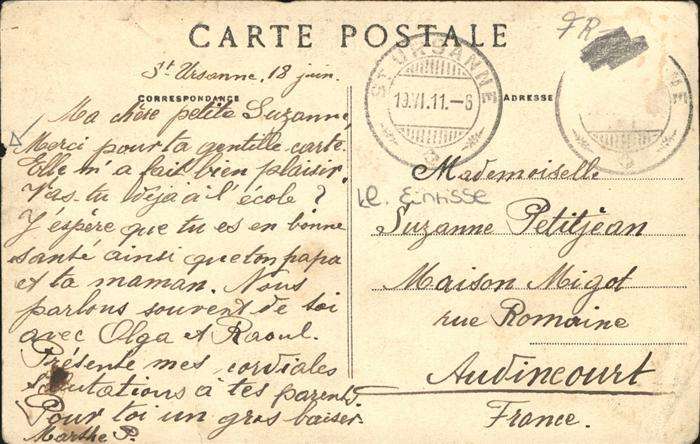 CARTE POSTALE
FR
St Ursanne, 18 juin.
CORRESPONDANCE
Ma chère petite Suzanne,
Merci pour ta gentille carte.
Elle m'a fait bien plaisir.
Vas-tu déjà à l'école ?
J'éspère que tu es en bonne
santé ainsi que ton papa
et ta maman. Nous
parlons souvent de toi
avec Olga et Raoul.
Présente mes cordiales
salutations à tes parents.
Pour toi un gros baiser.
Marthe P.
ST URSANNE
19.VI.11.-6
ADRESSE
Mademoiselle
Suzanne Petitjean
Maison Migot
rue Romaine
Audincourt
France.